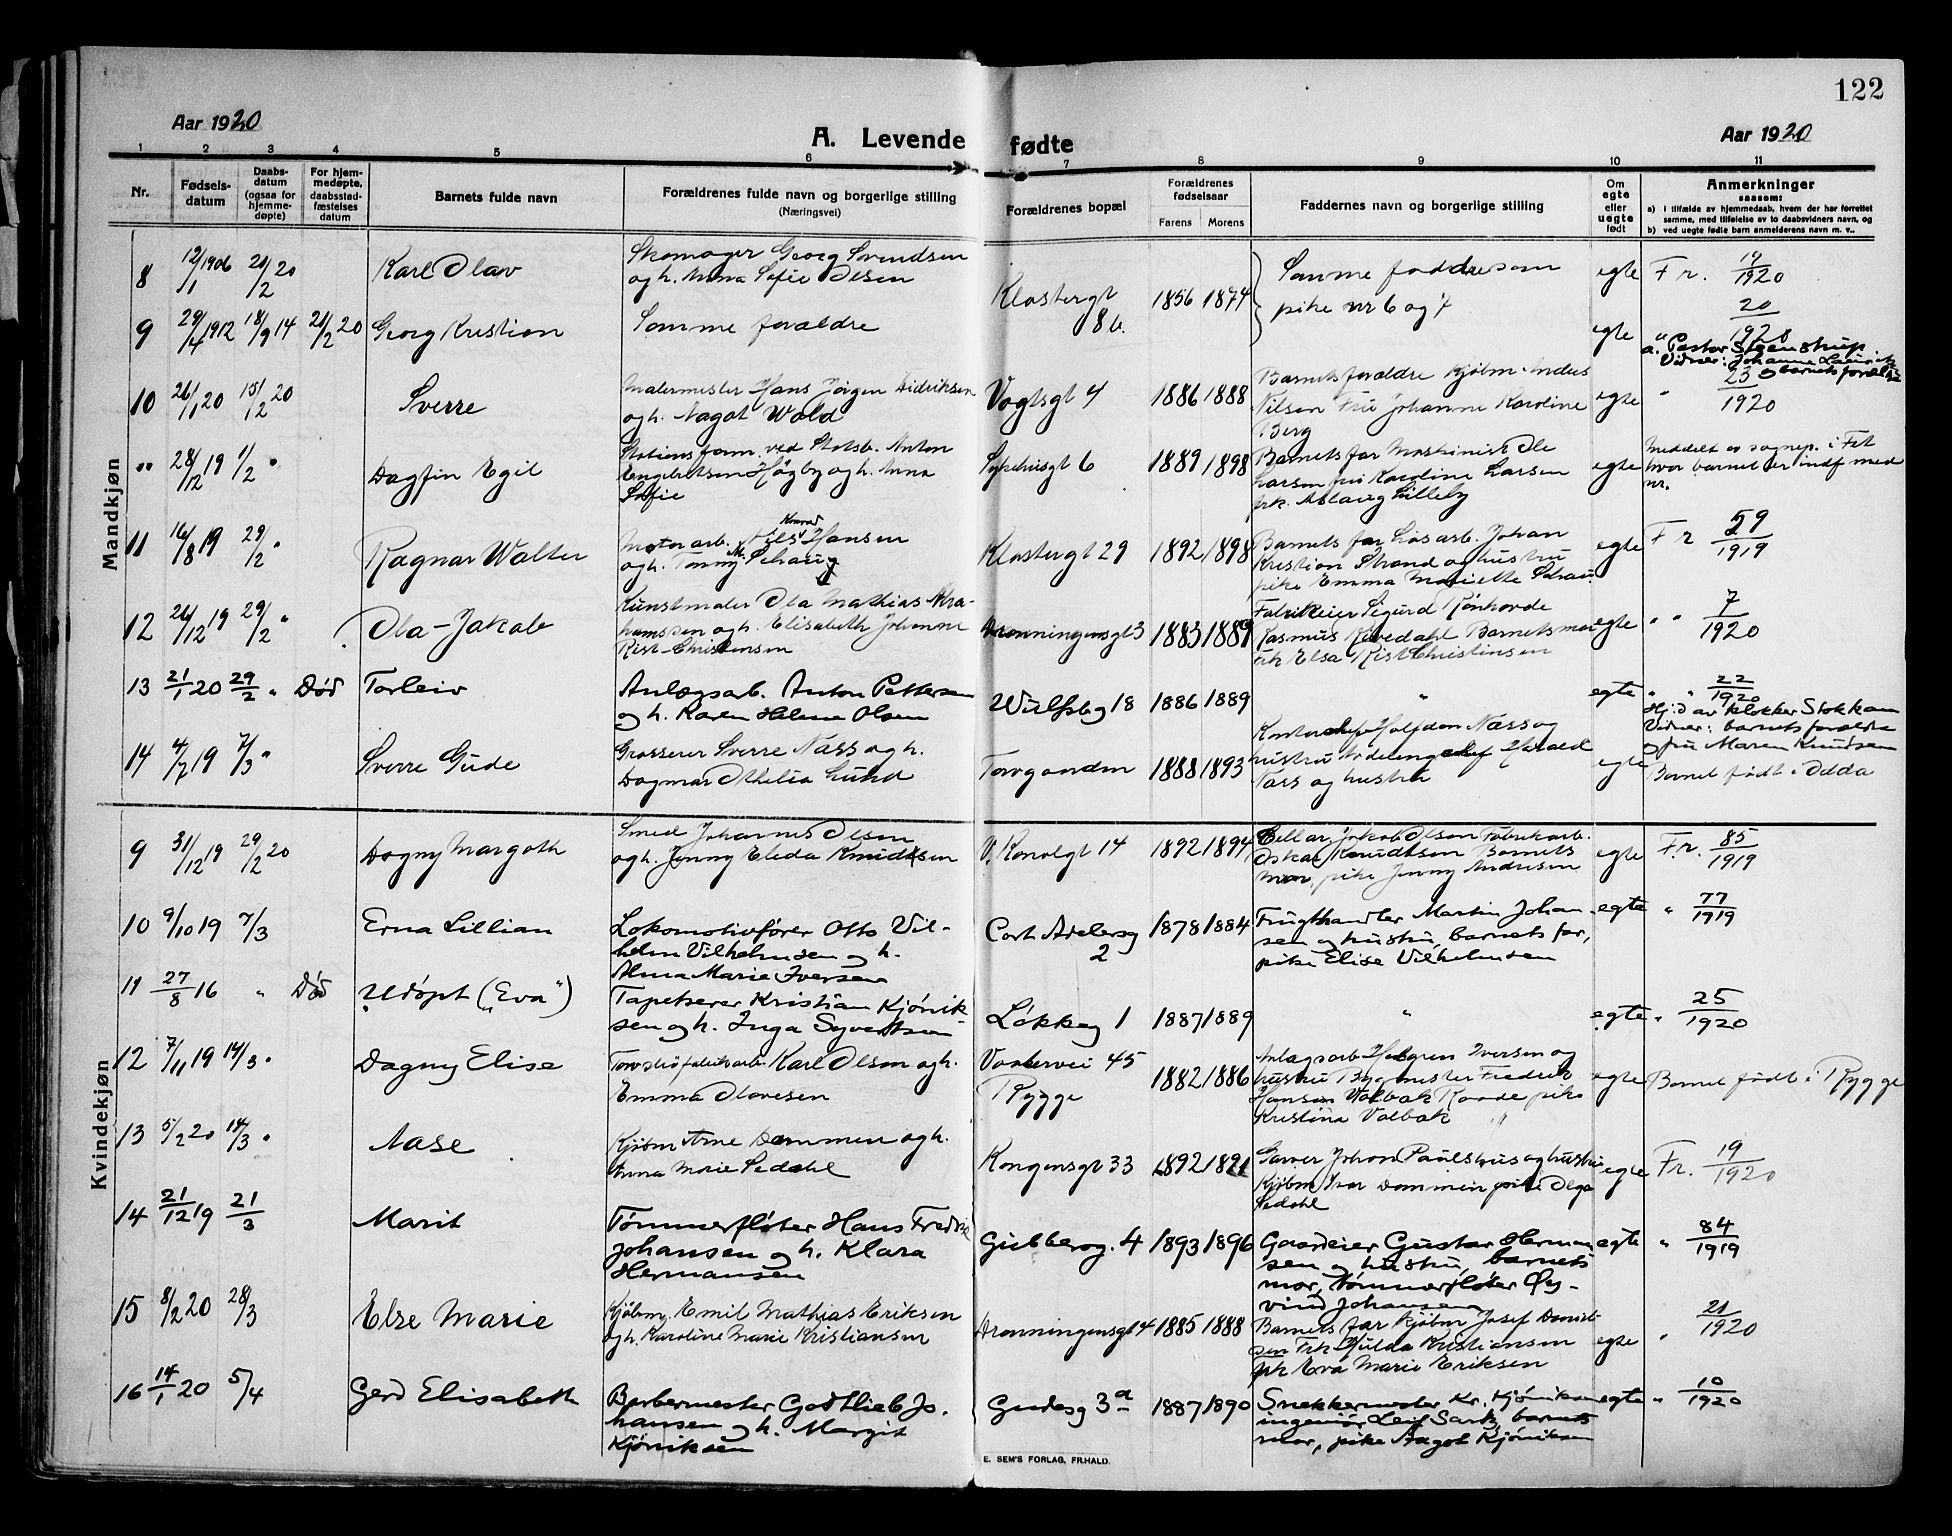 122
Aar 1920
A. Levende fødte
Aar 1920
1 2 3 4 5 6 7 8 9 10 11
Nr.
Fødsels-
datum
Daabs-
datum
(ogsaa for
hjemme-
døpte)
For hjem-
medøpte,
daabsstad-
fæstelses
datum
Barnets fulde navn
Forældrenes fulde navn og borgerlige stilling
(Næringsvei)
Forældrenes bopæl
Forældrenes
fødselsaar
Farens Morens
Faddernes navn og borgerlige stilling
Om
egte
eller
uegte
født
Anmerkninger
saasom:
a) i tilfælde av hjemmedaab, hvem der har forrettet
samme, med tilføielse av to daabsvidners navn, og
b) ved uegte fødte barn anmelderens navn m. v..
Mandkjøn
8 12/1 1906 20/2 20 Karl Olav
Skomager Georg Svendsen
og h. Anna Sofie Olsen
Klostergt
8 b.
1856 1874
Samme faddre som
pike nr 6 og 7
egte Fr. 19/1920
9 29/4 1912 18/9 14 21/2 20 Georg Kristian
Samme forældre
egte " 20/1920
a. Pastor Steenstrup
Vidner: Johanne
og barnets forældre
10 26/1 20 15/2 20 Sverre
Malermester Hans Jørgen Didriksen
og h. Aagot Wold
Vogtsgt 4 1886 1888
Barnets forældre Kjøbm. Anders
Nilsen Fru Johanne Karoline
Berg
egte " 23/1920
" 28/12 19 1/2 " Dagfin Egil
Stationsform. ved Statsb. Anton
Engebretsen Høgby og h. Anna
Sofie
Sykehusgt 6 1889 1898
Barnets far Maskinist Ole
Larsen fru Karoline Larsen
frk. Aslaug Lilleby
egte
Meddelt av sognep. i Fet
hvor barnet er indf med
nr.
11 16/8 19 29/2 " Ragnar Walter
Konrad
Motorarb. Nils Hansen
og h. Tonny M. Schaug
Klostergt 29 1892 1898
Barnets far Løsarb. Johan
Kristian Strand og hustru
pike Emma Mariette Schau
egte Fr 59/1919
12 26/12 19 29/2 " Ola-Jakob
Kunstmaler Ola Mathias Abra-
hamssen og h. Elisabeth Johanne
Rist-Christensen
Dronningensgt 3 1883 1889
Fabrikeier Sigurd Rønhovde
Rasmus Kevedahl Barnets mor
frk Elsa Rist Christensen
egte " " 7/1920
13 21/1 20 29/2 " Død Torleiv
Anlægsarb. Anton Pettersen
og h. Karen Helene Olsen
Wulfsbg 18 1886 1889 "
egte " " 22/1920
Hj.d av klokker Stokkan
Vidner: barnets forældre
og fru Maren Knudsen
14 4/7 19 7/3 " Sverre Gude
Grosserer Sverre Næss og h.
Dagmar Othelia Lund
Torvgaarden 1888 1893
Kontorchef Halfdan Næss og
hustru Avdelingschef Harald
Næss og hustru
egte Barnet født i Odda
Kvindekjøn
9 31/12 19 29/2 20 Dagny Margoth
Smed Johannes Olsen
og h. Jenny Eleda Knudsen
V. Kanalgt 14 1892 1894
Jakob Olsen Fabrikarb.
Oskar Knudtsen Barnets
mor, pike Jenny Andresen
egte Fr. 85/1919
10 9/10 19 7/3 Erna Lillian
Lokomotivfører Otto Vil-
helm Vilhelmsen og h.
Alma Marie Iversen
Cort Adelersg
2
1878 1884
Frugthandler Martin Johan-
sen og hustru, barnets far,
pike Elise Vilhelmsen
egte " 77/1919
11 27/8 16 " Død Udøpt ("Eva")
Tapetserer Kristian Kjønik-
sen og h. Inga Syvertsen
Løkkeg 1 1887 1889 "
egte " 25/1920
12 7/11 19 14/3 " Dagny Elise
Torvstrøfabrikarb. Karl Olson og h.
Emma Olavesen
Vaalervei 45
Rygge
1882 1886
Anlægsarb Holgren Iversen og
hustru Bygmester Fredrik
Hansen Valbak Raade pike
Kristina Valbak "
egte Barnet født i Rygge
13 5/2 20 14/3 " Aase
Kjøbm Arne Dammen og h.
Anna Marie Sedahl
Kongensgt 33 1892 1891
Garver Johan Paulshus og hustru
Kjøbm Ivar Dammen pike Olga
Sedahl
egte Fr. 19/1920
14 21/12 19 21/3 Marit
Tømmerfløter Hans Fredrik
Johansen og h. Klara
Hermansen
Gubberog. 4 1893 1896
Gaardeier Gustav Herman-
sen og hustru, barnets
mor, tømmerfløter Øy-
vind Johansen
egte " 84/1919
15 8/2 20 28/3 Else Marie
Kjøbm. Emil Mathias Eriksen
og h. Karoline Marie Kristiansen
Dronningensgt 4 1885 1888
Barnets far Kjøbm Josef Daniel-
sen Frk Hulda Kristiansen
frk Eva Marie Eriksen
egte " 21/1920
16 14/1 20 5/4 Gerd Elisabeth
Barbermester Godtlieb Jo-
hansen og h. Margit
Kjøniksen
Gudesg 3a 1887 1890
Snekkermester Kr. Kjøniksen
ingeniør Leif Sark, barnets
mor, pike Aagot Kjøniksen
egte " 10/1920
E. SEM'S FORLAG, FR.HALD.